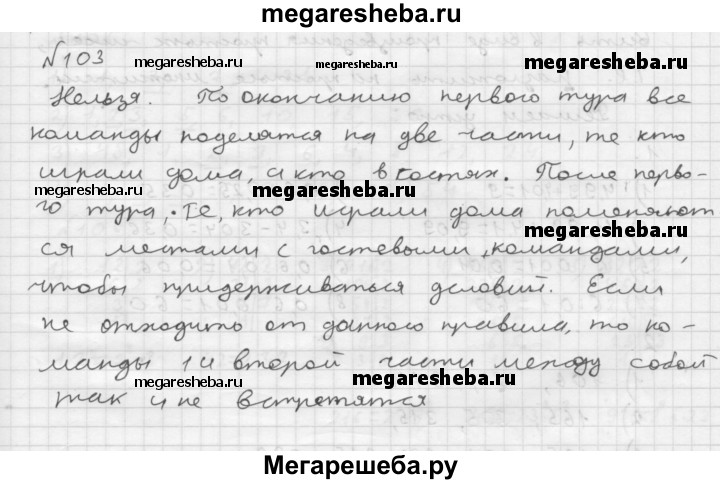 megaresheba.ru
№103
megaresheba.ru
megaresheba.ru
Нельзя. По окончанию первого тура все
команды поделятся на две части, те кто
играли дома, и кто в гостях. После перво-
megaresheba.ru
megaresheba.ru
го тура, те, кто играли дома поменяют
ся местами с гостевыми командами,
чтобы придерживаться условий. Если
не отходить от данного правила, то ко-
манды 1 и второй части между собой
megaresheba.ru
megaresheba.ru
так и не встретятся
Мегарешеба.ру